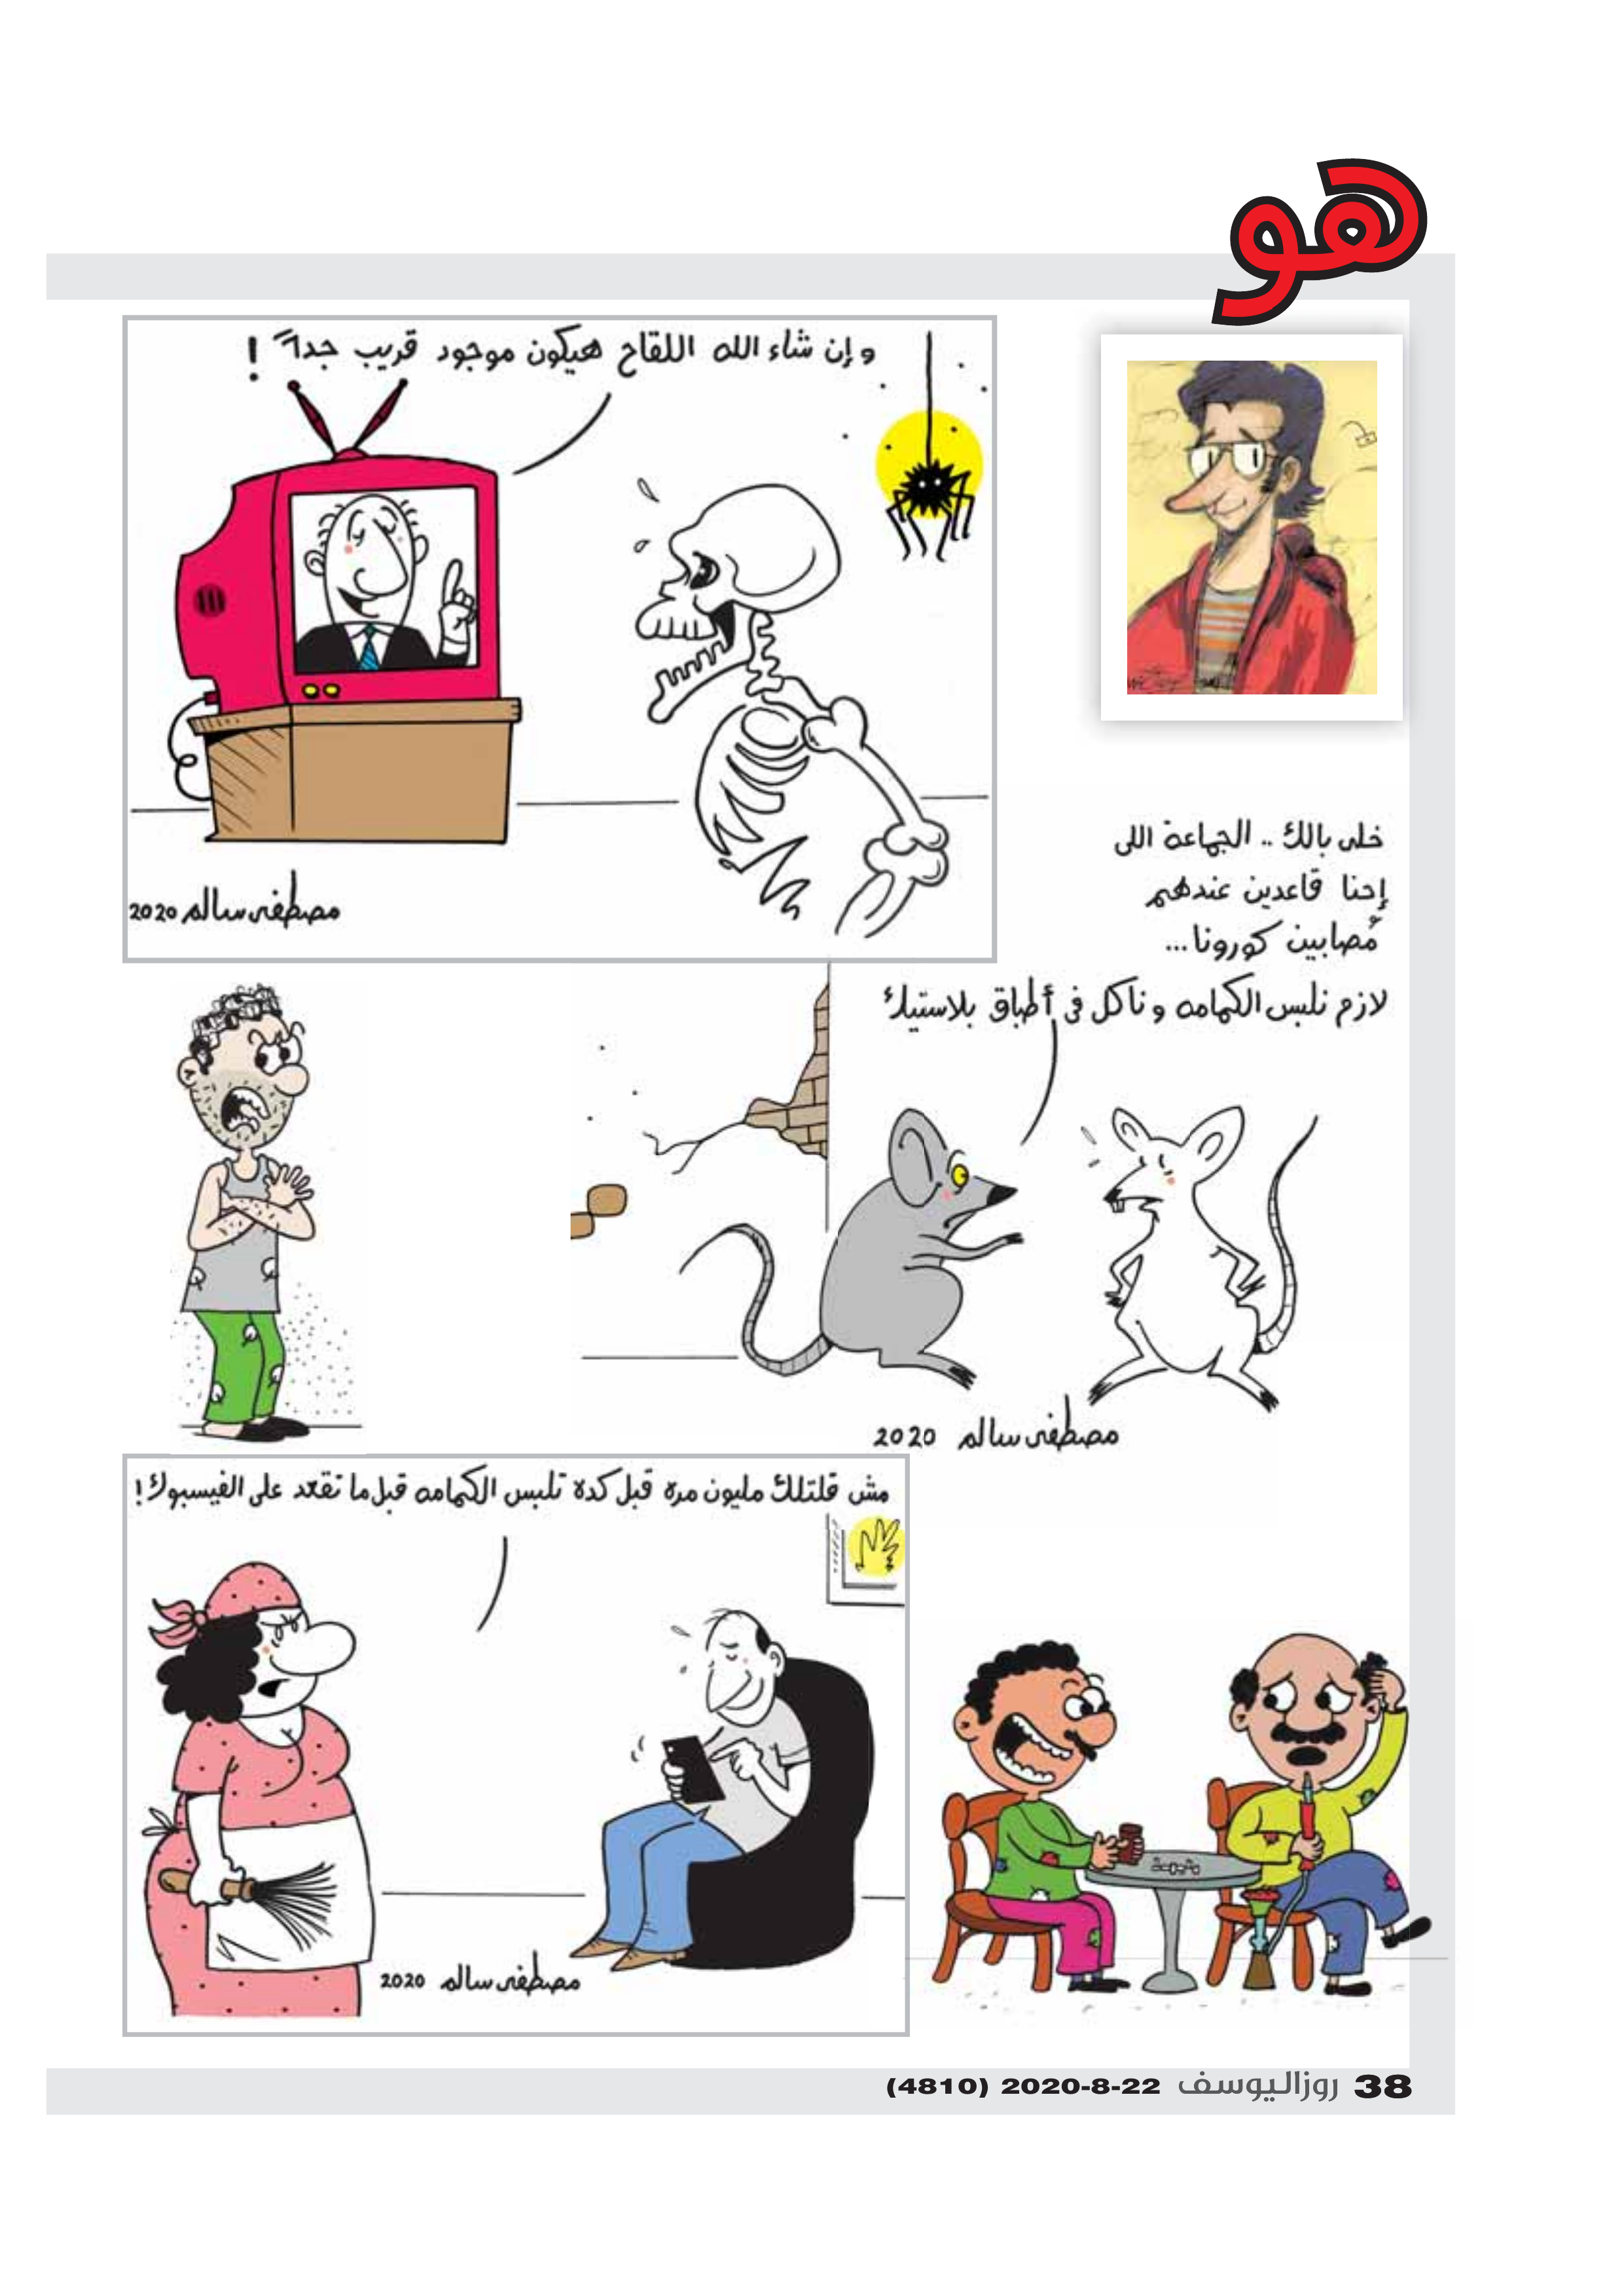 هو
وإن شاء الله اللقاح هيكون موجود قريب جداً !
مصطفى سالم 2020
خلى بالك .. الجماعة اللى
إحنا قاعدين عندهم
مُصابين كورونا ...
لازم نلبس الكمامه وناكل فى أطباق بلاستيك
مصطفى سالم 2020
مش قلتلك مليون مره قبل كدة تلبس الكمامه قبل ما تقعد على الفيسبوك !
مصطفى سالم 2020
38 روزاليوسف 22-8-2020 (4810)